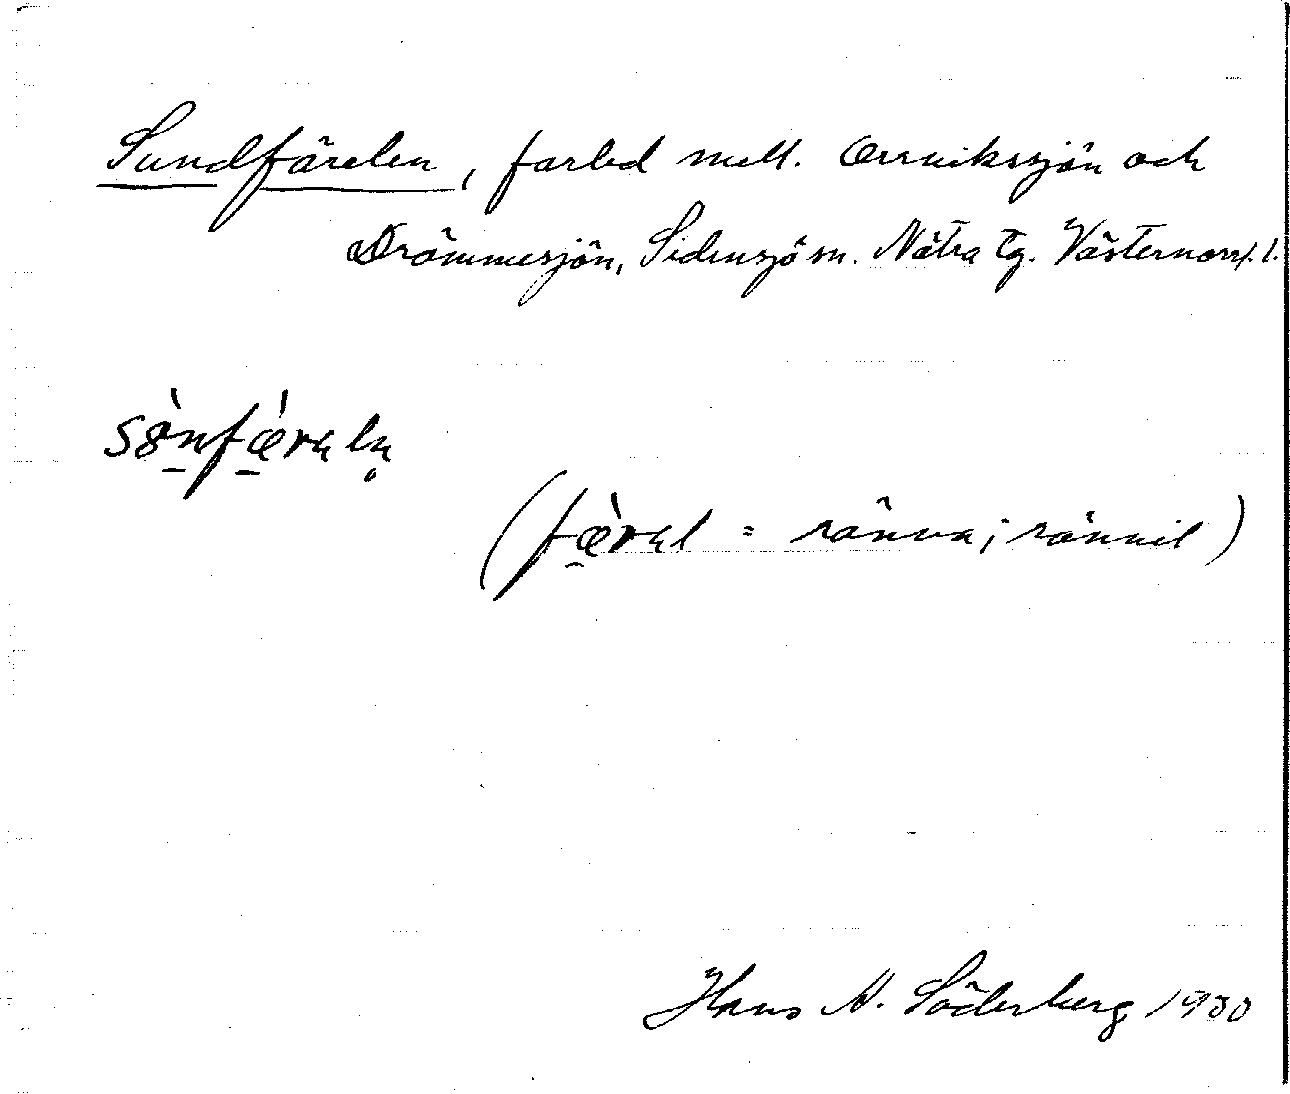 Sundfärelen, farled mell. Orrvikssjön och
Drömmesjön, Sidensjö sn. Nätra tg. Västernorrl. l.
(fæ̀rel = ränna; rännil)
Hans N. Söderberg 1930